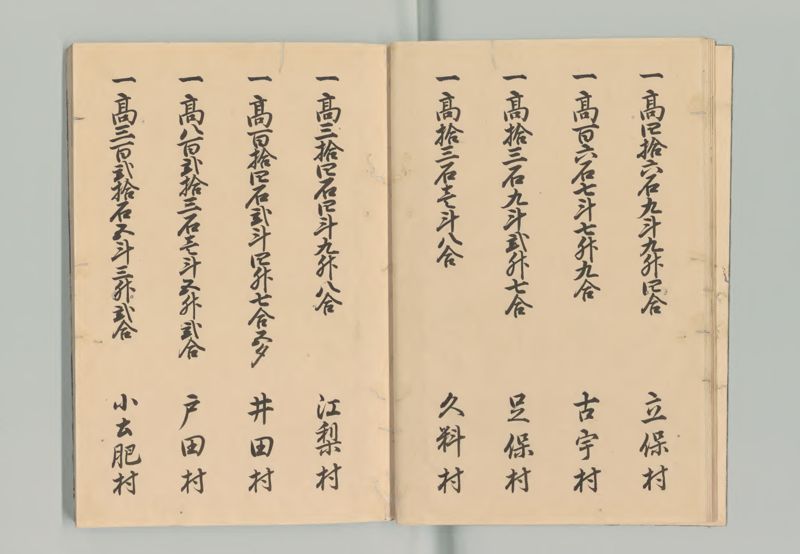 一髙四拾六石九斗九升四合 立保村
一髙百六石七斗七升九合 古宇村
一髙拾三石九斗弐升七合 足保村
一髙拾三石壱斗八合 久料村
一髙三拾四石四斗九升八合 江梨村
一髙百拾四石弐斗四升七合五夕 井田村
一髙八百弐拾三石壱斗五升弐合 戸田村
一髙三百弐拾石五斗三升弐合 小土肥村